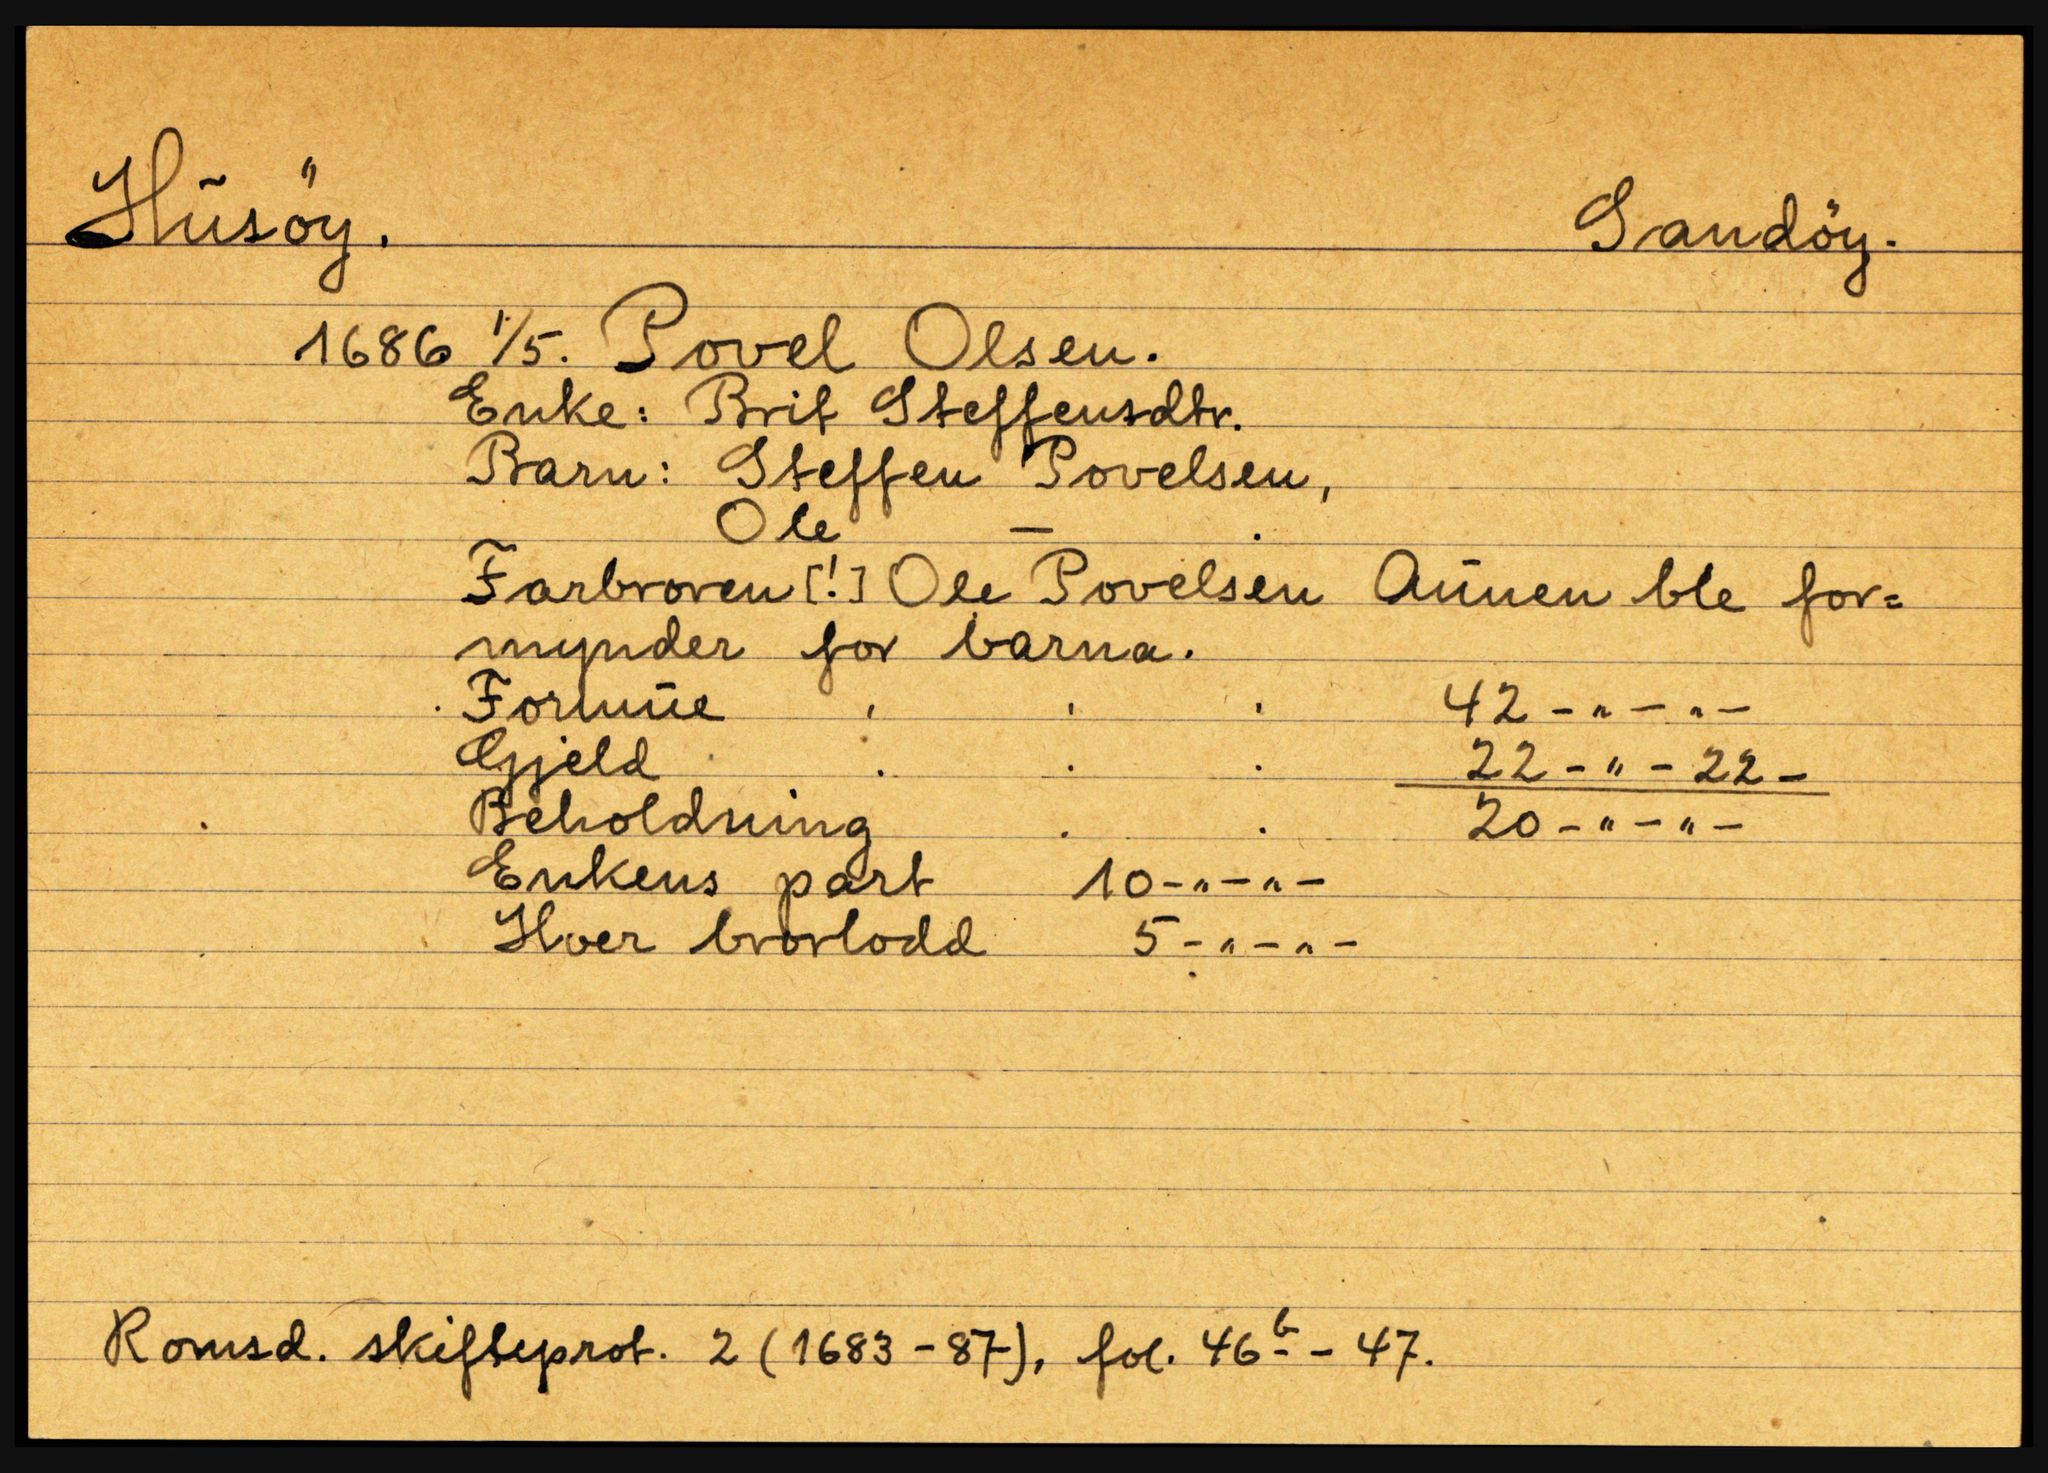 Husöy. Sandöy.
1686 1/5. Povel Olsen.
Enke: Brit Steffensdtr.
Barn: Steffen Povelsen,
Ole — .
Farbroren [!] Ole Povelsen Aunen ble for=
mynder for barna.
Formue . . . 42 - " - " -
Gjeld . . . 22 - " - 22 -
Beholdning . . 20 - " - " -
Enkens part 10 - " - " -
Hver brorlodd 5 - " - " -
Romsd. skifteprot. 2 (1683-87), fol. 46b - 47.